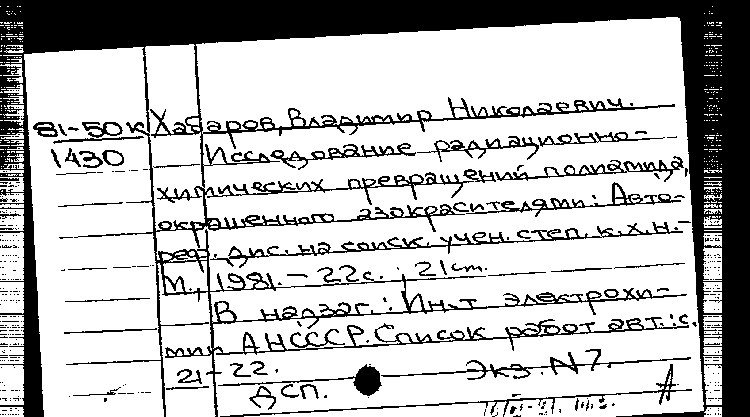 81-50к Хабаров, Владимир Николаевич.
1430 Исследование радиационно-
химических превращений полиамида,
окрашенного азокрасителями: Авто-
реф. дис. на соиск. учен. степ. к.х.н.-
М., 1981. - 22с. ; 21см.
В надзаг.: Ин-т электрохи-
мии АНСССР. Список работ авт.: с.
21-22.
ДСП. Экз. N7.